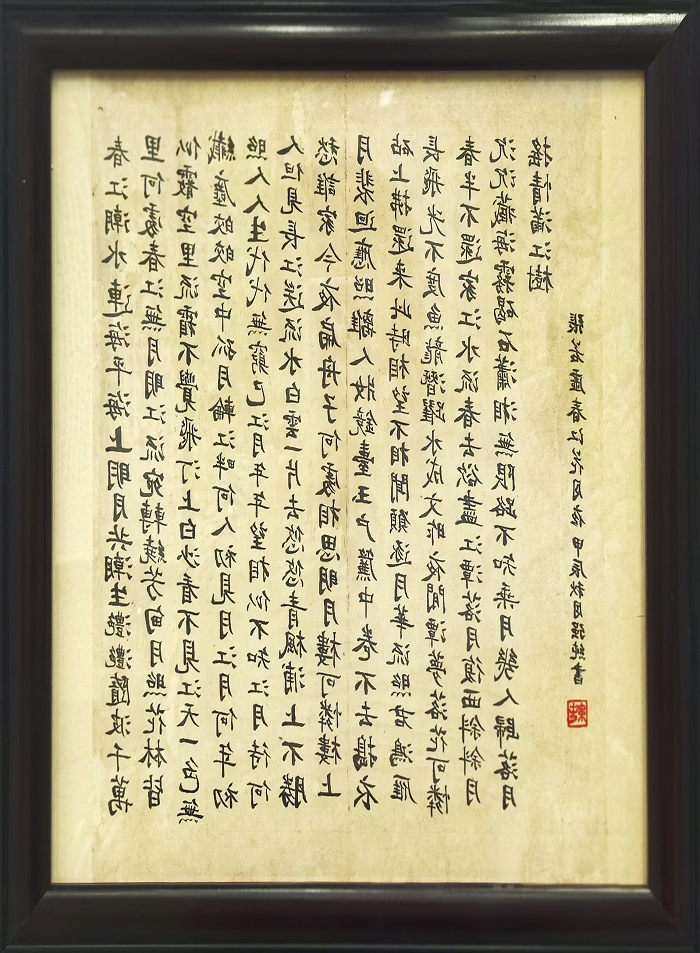 春江潮水連海平海上明月共潮生灩灩隨波千萬
里何處春江無月明江流宛轉繞芳甸月照花林皆
似霰空里流霜不覺飛汀上白沙看不見江天一色無
纖塵皎皎空中孤月輪江畔何人初見月江月何年初
照人人生代代無窮已江月年年望相似不知江月待何
人但見長江送流水白雲一片去悠悠青楓浦上不勝
愁誰家今夜扁舟子何處相思明月樓可憐樓上
月裴迴應照離人妝鏡臺玉戶簾中卷不去搗衣
砧上拂還来此時相望不相聞願逐月華流照君鴻雁
長飛光不度魚龍潛躍水成文昨夜閒潭夢落花可憐
春半不還家江水流春去欲盡江潭落月復西斜斜月
沉沉藏海霧碣石瀟湘無限路不知乘月幾人歸落月
搖情滿江樹
張若虛春江花月夜甲辰秋月强純書